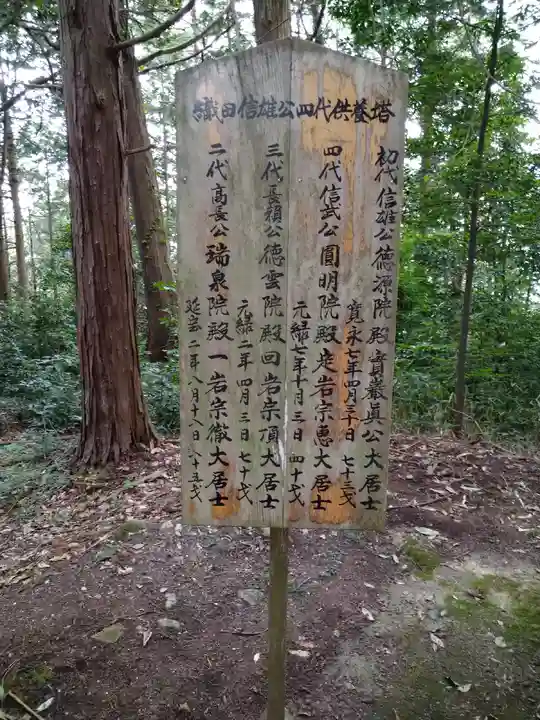 織田信雄公四代供養塔
初代信雄公徳源院殿實巖眞公大居士
寛永七年四月三十日 七十三才
四代信武公圓明院殿走岩宗恵大居士
元緑七年十月三日 四十才
三代長頼公徳雲院殿回岩宗頂大居士
元緑二年四月三日 七十才
二代高長公瑞泉院殿一岩宗徹大居士
延芸二年八月十八日 八十五才